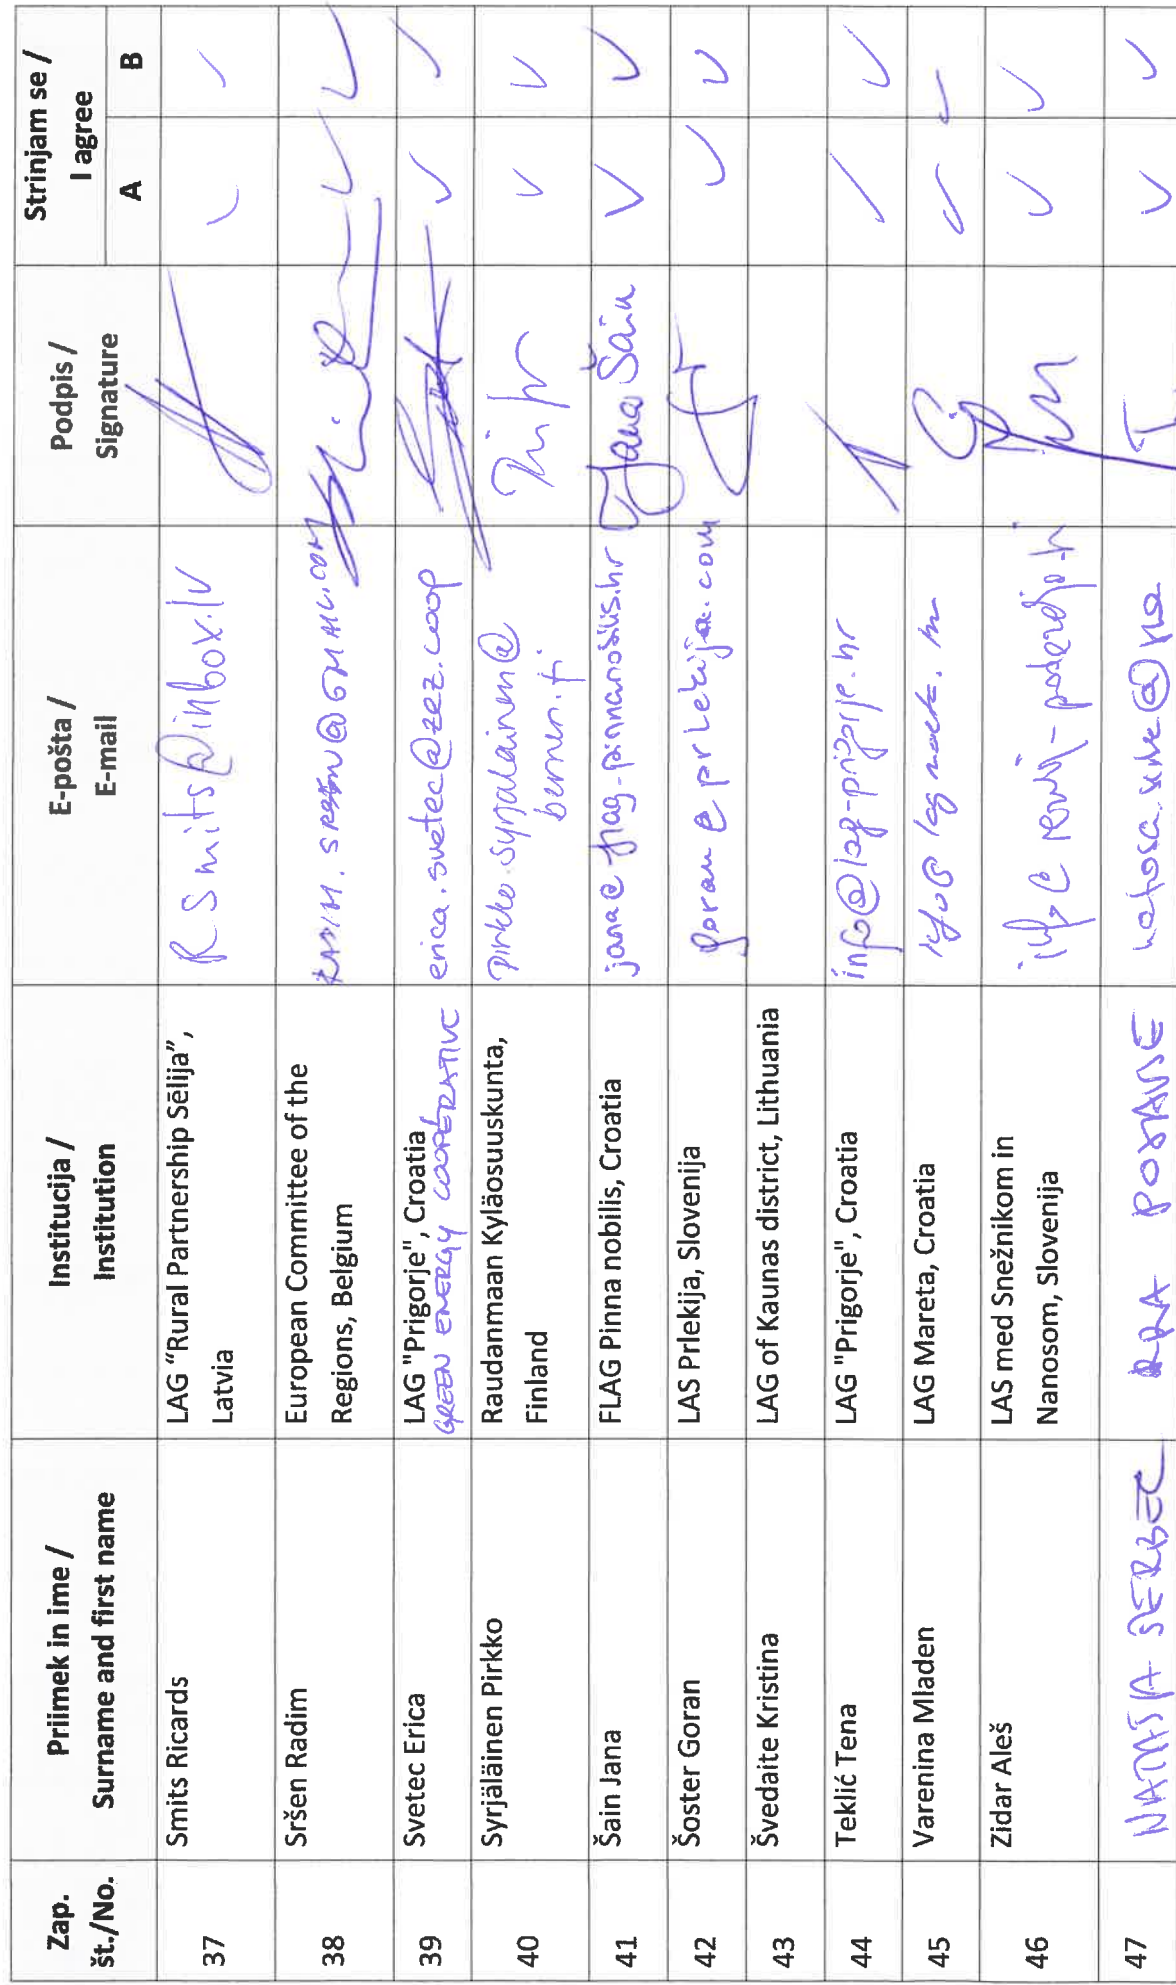 Zap. št./No.
Priimek in ime / Surname and first name
Institucija / Institution
E-pošta / E-mail
Podpis / Signature
Strinjam se / I agree
A
B
37
Smits Ricards
LAG “Rural Partnership Sēlija”,
Latvia
RSmits@inbox.lv
38
Sršen Radim
European Committee of the
Regions, Belgium
RADIM.SRSEN@GMAIL.COM
39
Svetec Erica
LAG "Prigorje", Croatia
GREEN ENERGY COOPERATIVE
erica.svetec@zez.coop
40
Syrjäläinen Pirkko
Raudanmaan Kyläosuuskunta,
Finland
pirkko.syrjalainen@
berner.fi
41
Šain Jana
FLAG Pinna nobilis, Croatia
jana@flag-pinnanobilis.hr
Jana Šain
42
Šoster Goran
LAS Prlekija, Slovenija
goran@prlekija.com
43
Švedaite Kristina
LAG of Kaunas district, Lithuania
44
Teklić Tena
LAG "Prigorje", Croatia
info@lag-prigorje.hr
45
Varenina Mladen
LAG Mareta, Croatia
46
Zidar Aleš
LAS med Snežnikom in
Nanosom, Slovenija
47
NATAŠA SERBEC
RRA POSAVJE